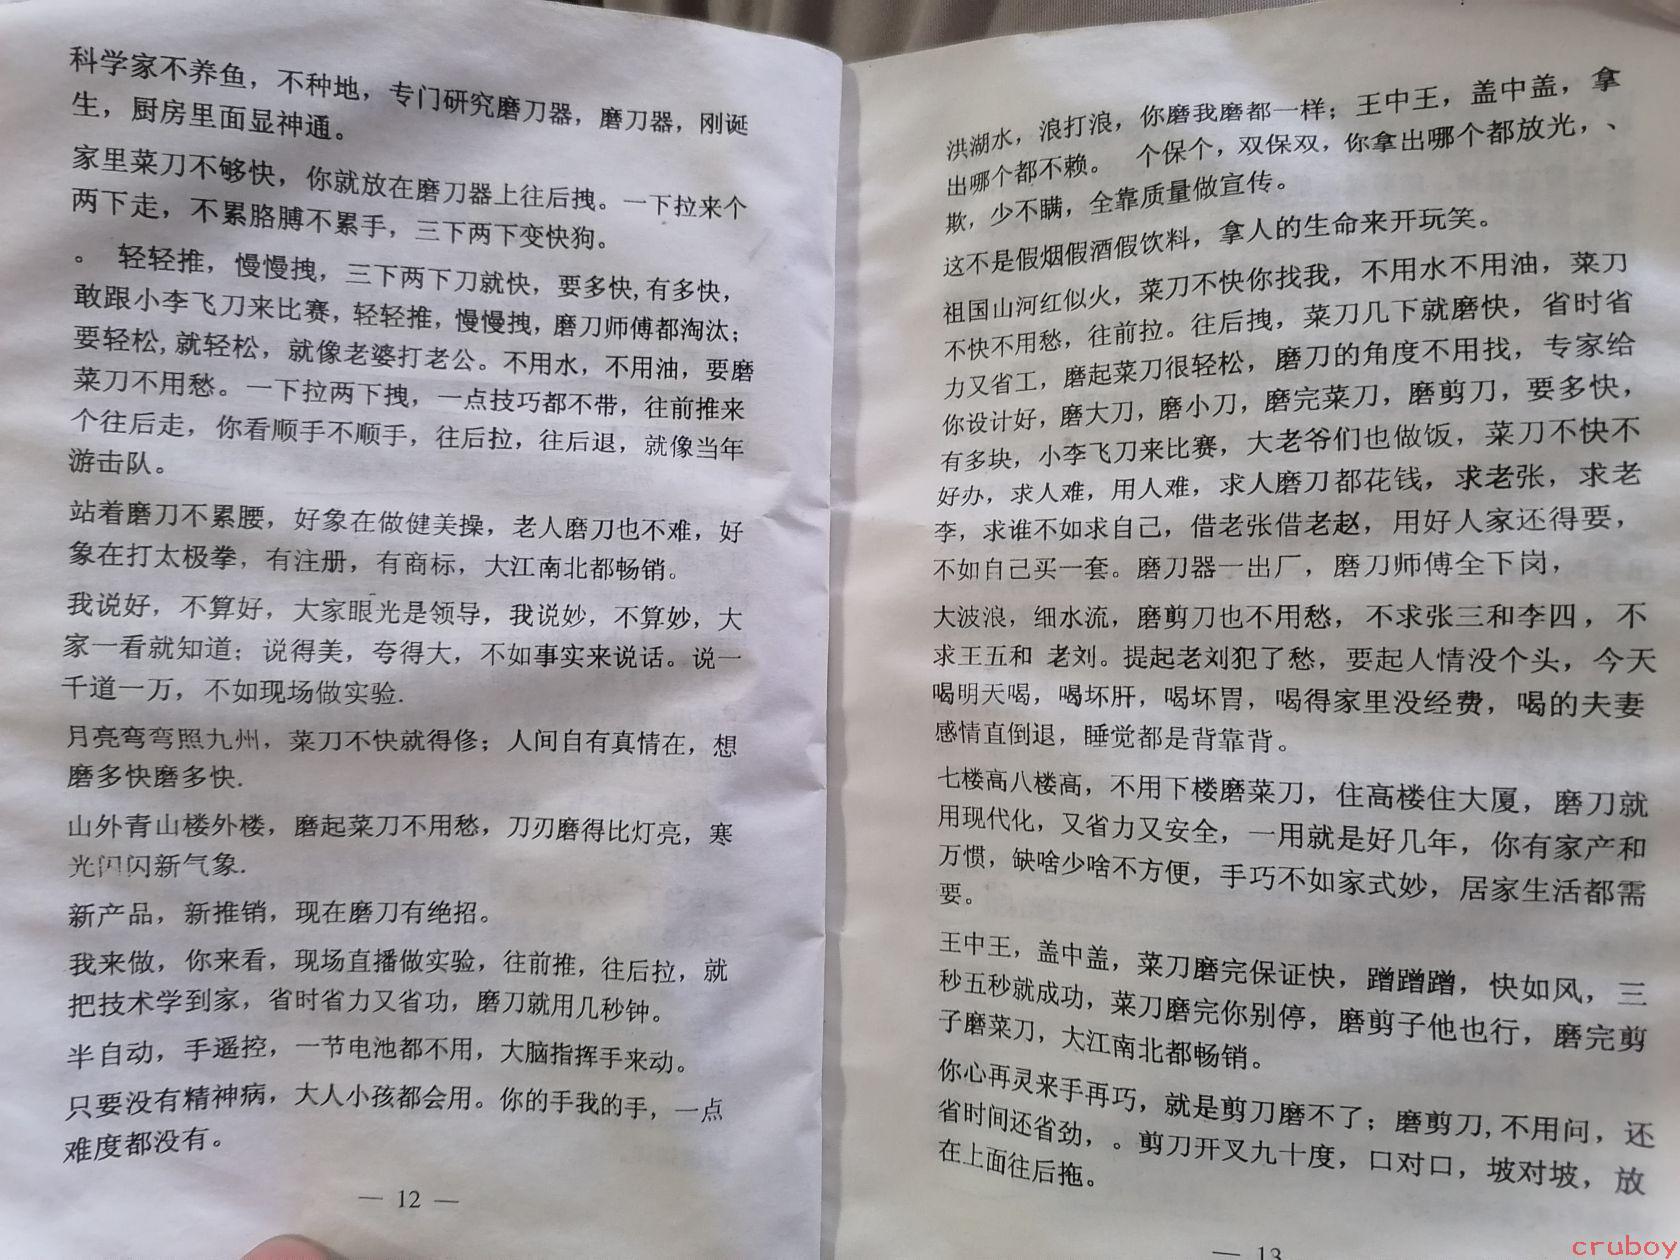 科学家不养鱼，不种地，专门研究磨刀器，磨刀器，刚诞
生，厨房里面显神通。
家里菜刀不够快，你就放在磨刀器上往后拽。一下拉来个
两下走，不累胳膊不累手，三下两下变快狗。
。 轻轻推，慢慢拽，三下两下刀就快，要多快,有多快，
敢跟小李飞刀来比赛，轻轻推，慢慢拽，磨刀师傅都淘汰；
要轻松,就轻松，就像老婆打老公。不用水，不用油，要磨
菜刀不用愁。一下拉两下拽，一点技巧都不带，往前推来
个往后走，你看顺手不顺手，往后拉，往后退，就像当年
游击队。
站着磨刀不累腰，好象在做健美操，老人磨刀也不难，好
象在打太极拳，有注册，有商标，大江南北都畅销。
我说好，不算好，大家眼光是领导，我说妙，不算妙，大
家一看就知道；说得美，夸得大，不如事实来说话。说一
千道一万，不如现场做实验.
月亮弯弯照九州，菜刀不快就得修；人间自有真情在，想
磨多快磨多快.
山外青山楼外楼，磨起菜刀不用愁，刀刃磨得比灯亮，寒
光闪闪新气象.
新产品，新推销，现在磨刀有绝招。
我来做，你来看，现场直播做实验，往前推，往后拉，就
把技术学到家，省时省力又省功，磨刀就用几秒钟。
半自动，手遥控，一节电池都不用，大脑指挥手来动。
只要没有精神病，大人小孩都会用。你的手我的手，一点
难度都没有。
— 12 —
洪湖水，浪打浪，你磨我磨都一样；王中王，盖中盖，拿
出哪个都不赖。 个保个，双保双，你拿出哪个都放光，、
欺，少不瞒，全靠质量做宣传。
这不是假烟假酒假饮料，拿人的生命来开玩笑。
祖国山河红似火，菜刀不快你找我，不用水不用油，菜刀
不快不用愁，往前拉。往后拽，菜刀几下就磨快，省时省
力又省工，磨起菜刀很轻松，磨刀的角度不用找，专家给
你设计好，磨大刀，磨小刀，磨完菜刀，磨剪刀，要多快，
有多块，小李飞刀来比赛，大老爷们也做饭，菜刀不快不
好办，求人难，用人难，求人磨刀都花钱，求老张，求老
李，求谁不如求自己，借老张借老赵，用好人家还得要，
不如自己买一套。磨刀器一出厂，磨刀师傅全下岗，
大波浪，细水流，磨剪刀也不用愁，不求张三和李四，不
求王五和 老刘。提起老刘犯了愁，要起人情没个头，今天
喝明天喝，喝坏肝，喝坏胃，喝得家里没经费，喝的夫妻
感情直倒退，睡觉都是背靠背。
七楼高八楼高，不用下楼磨菜刀，住高楼住大厦，磨刀就
用现代化，又省力又安全，一用就是好几年，你有家产和
万惯，缺啥少啥不方便，手巧不如家式妙，居家生活都需
要。
王中王，盖中盖，菜刀磨完保证快，蹭蹭蹭，快如风，三
秒五秒就成功，菜刀磨完你别停，磨剪子他也行，磨完剪
子磨菜刀，大江南北都畅销。
你心再灵来手再巧，就是剪刀磨不了；磨剪刀,不用问，还
省时间还省劲，。剪刀开叉九十度，口对口，坡对坡，放
在上面往后拖。
— 13
cruboy